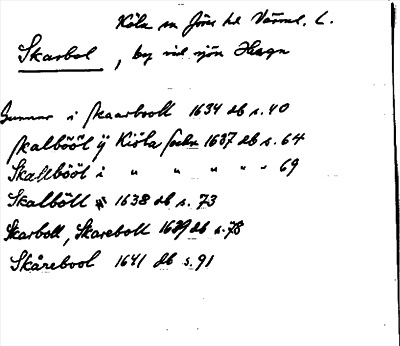 Köla sn Jösse hd Värml. L.
Skarbol, by vid sjön Hugn
Gunnar i skaarboolt 1634 db s. 40
skalbööt ÿ Kiöla sochn 1637 db s. 64
Skallbööt i " " " " " 69
Skalbött 1638 db s. 73
Skarbott, Skarebolt 1639 db s. 78
Skårebool 1641 db s. 91